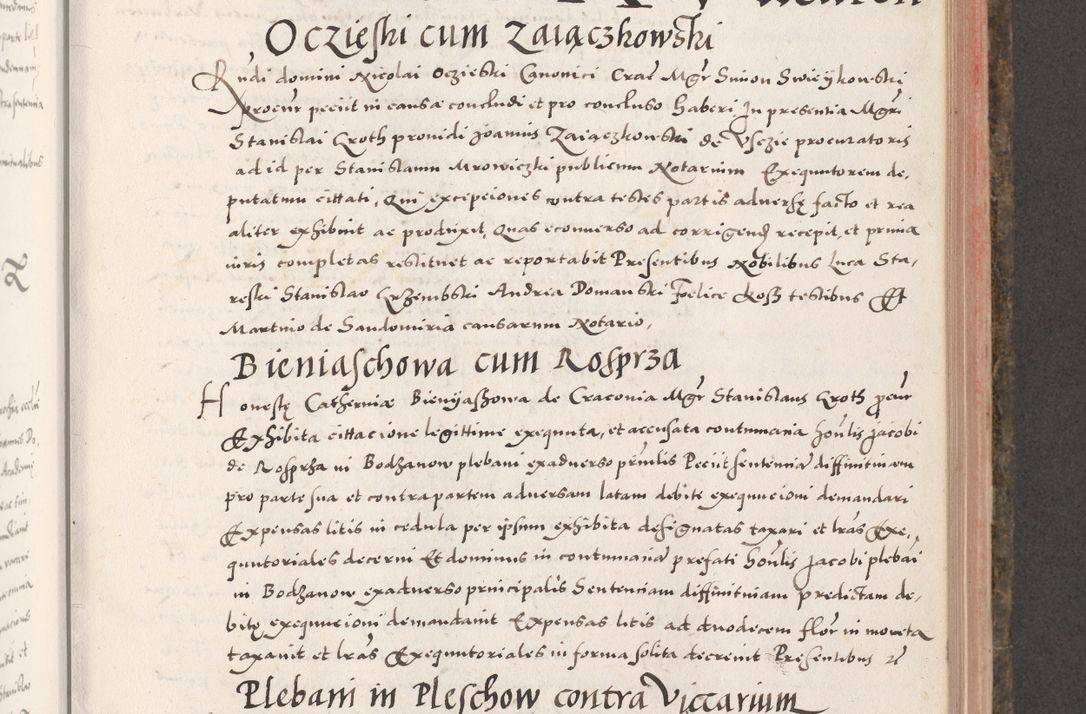 Oczieski cum Zaiączkowski
Rndi domini Nicolai Oczieski Canonici Crac Mgr Simon Swieykowski
procur peciit in causa concludi et pro concluso haberi In presentia Mgri
Stanislai Groth providi Joannis Zaiączkowski de Usczie procuratoris
ad id per Stanislaum Mrowiczki publicum Notarium Exequutorem de,
putatum cittati, Qui excepciones contra testes partis adversę facto et rea
aliter exhibuit ac produxit, Quas econverso ad corrigend recepit, et prima
iuris completas restituet ac reportabit Presentibus Nobilibus Luca Sta,
reski Stanislao Grzembski Andrea Domanski Foelice Kosz testibus Et
Martino de Sandomiria causarum Notario,
Bieniaschowa cum Rosprza
Honestę Catherinæ Bienyashowa de Cracovia Mgr Stanislaus Groth procur
Exhibita cittacione legittime exequuta, et accusata contumacia honlis Jacobi
de Rosprza in Bodzanow plebani exadverso prinlis Peciit sentencia diffinitivam
pro parte sua et contra partem adversam latam debite exequucioni demandari
Expensas litis in cedula per ipsum exhibita designatas taxari et lras Exe,
quutoriales decerni Et dominus in contumacia prefati honlis Jacobi plebai
in Bodzanow exadverso principalis Sentenciam diffinitivam predictam de,
bitę exequucioni demandavit Expensas litis ad duodecem flor in moneta
taxavit et lras Exequutoriales in forma solita decrevit Presentibus
Plebani in Pleschow contra Viccarium